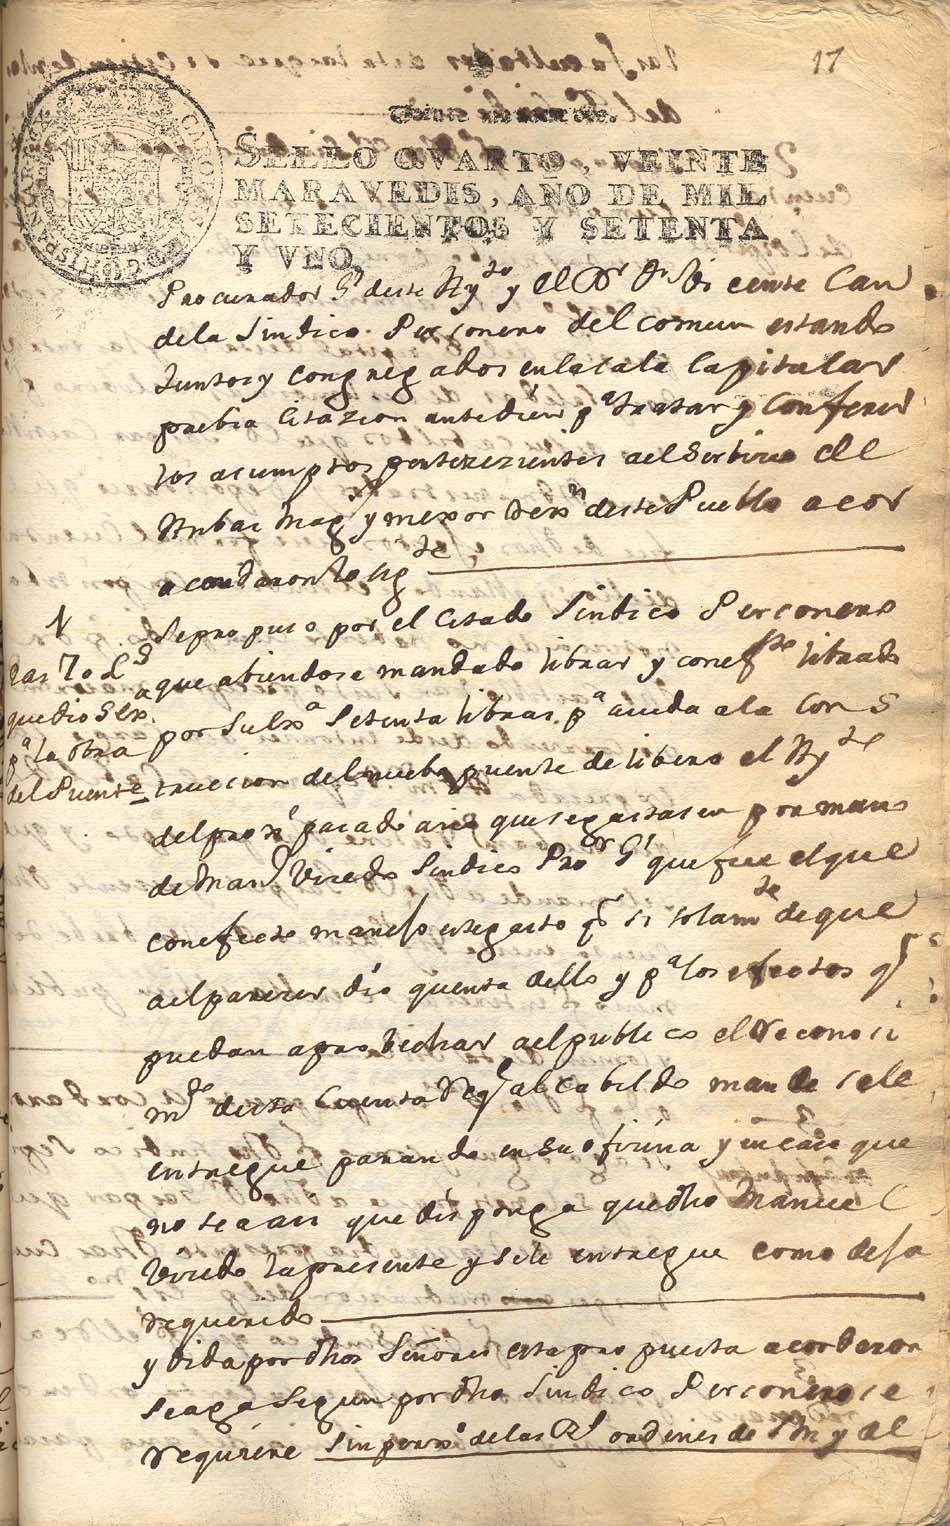 17
Veinte maravedis.
SELLO QVARTO, VEINTE
MARAVEDIS, AÑO DE MIL
SETECIENTOS Y SETENTA
Y VNO.
Procurador Gl deste Ayto y el Dr Dn Vicente Can
dela Sindico Personero del comun estando
Juntos y congregados en la Sala Capitular
prebia Citazion antediem pa tratar y Conferir
los asumptos pertenezientes al Serbicio de
Ambas Magd y mexor Regn deste Pueblo acor
acordaron lo sigte
1
Se propuso por el Citado Sindico Personero
que abiendose mandado librar y conefto librado
por Su Exa Setenta libras pa aiuda a la Cons
truccion del nuebo puente delibero el Ayto
del proxo pasado año que se gastasen por mano
de Manl Viredo Sindico Pror Gl que fue el que
conefecto manejo este gasto qe si solamte de que
al parecer dió quenta dello y pa los efectos qe
puedan aprobechar al publico el reconosi
mto desta Cuenta Reqe al Cabildo mande se le
entregue parando en su ofizina y en caso que
no sea asi que disponga que dho Manuel
Viredo la presente y se le entregue como deja
requerido
y oida por dhos Señores esta propuesta acordaron
se aga segun por dho Sindico Personero se
requiere sin perxo de las Rs ordenes de S M y del
las 70 Ls
que dio S Exa
pa la obra
del Puente